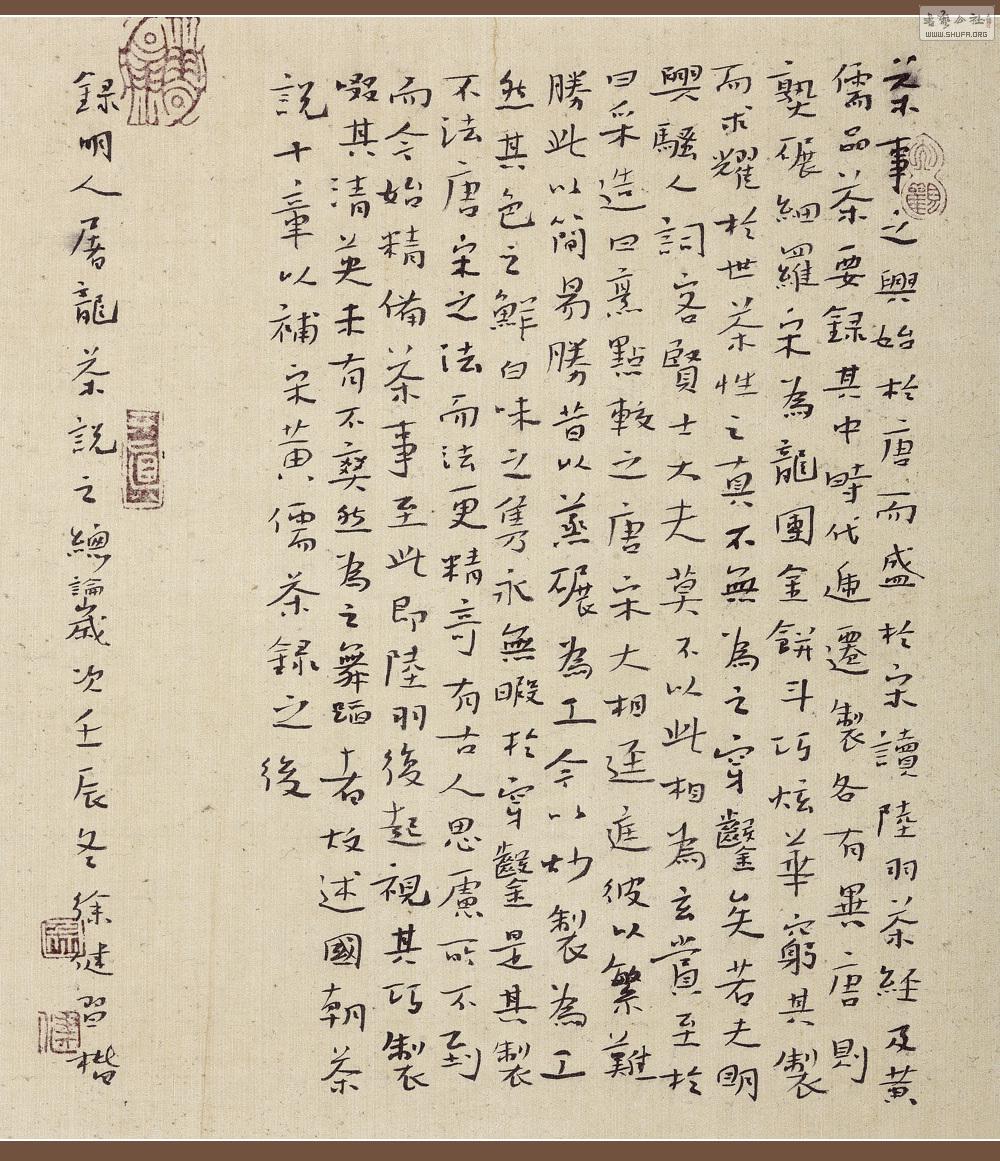 茶事之興始於唐而盛於宋讀陸羽茶經及黄
儒品茶要録其中時代逓遷製各有異唐則
熟碾細羅宋為龍團金餅斗巧炫華窮其製
而求耀於世茶性之真不無為之穿鑿矣若夫明
興騷人詞客賢士大夫莫不以此相為玄賞至於
曰采造曰烹點較之唐宋大相逕庭彼以繁難
勝此以簡易勝昔以蒸碾為工今以炒製為工
然其色之鮮白味之雋永無暇於穿鑿是其製
不法唐宋之法而法更精奇有古人思慮所不到
而今始精備茶事至此即陸羽復起視其巧製
啜其清英未有不爽然為之舞蹈者故述國朝茶
説十章以補宋黄儒茶録之後
録明人屠龍茶説之總論歲次壬辰冬徐健習楷
書藝公社
WWW.SHUFA.ORG